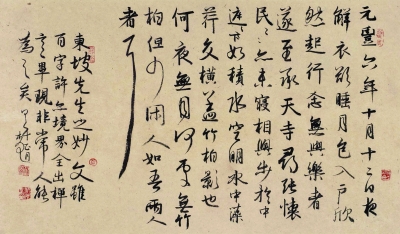 元豐六年十月十二日夜
解衣欲睡月色入户欣
然起行念無與樂者
遂至承天寺尋張懷
民民亦未寢相與步於中
庭下如積水空明水中藻
荇交橫蓋竹柏影也
何夜無月何處無竹
柏但少閑人如吾兩人
者耳
東坡先生之妙文雖
百字許然境界全出禪
意畢現非常人能
為之矣